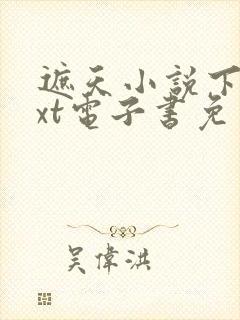 遮天小説下
xt電子書免
吳偉洪